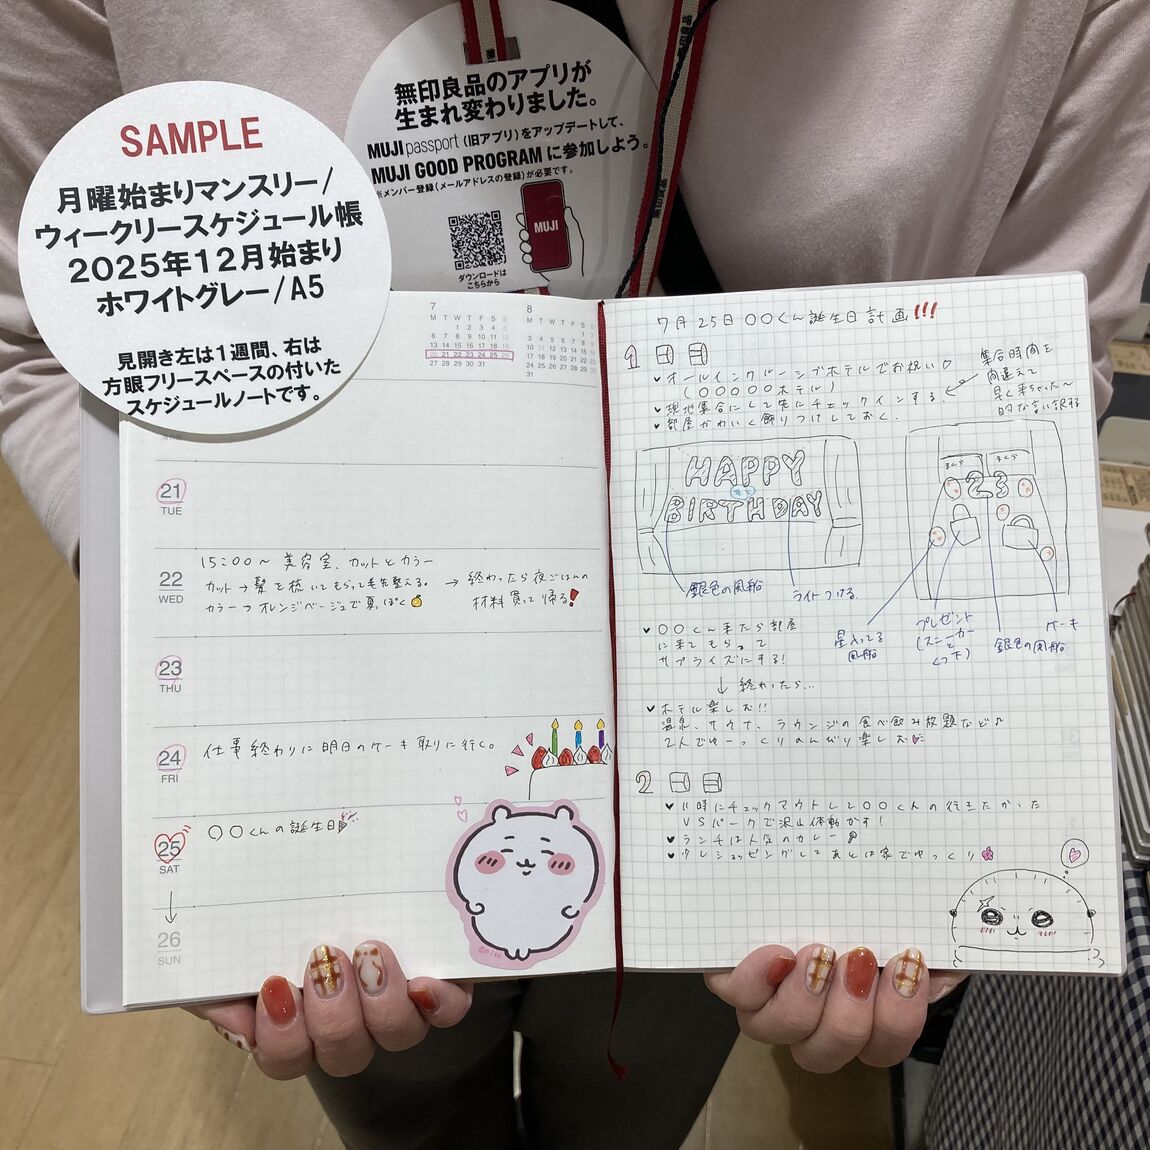 SAMPLE
月曜始まりマンスリー/
ウィークリースケジュール帳
2025年12月始まり
ホワイトグレー/A5
見開き左は1週間、右は
方眼フリースペースの付いた
スケジュールノートです。
無印良品のアプリが
生まれ変わりました。
MUJI passport(旧アプリ)をアップデートして、
MUJI GOOD PROGRAMに参加しよう。
※メンバー登録(メールアドレスの登録)が必要です。
MUJI
ダウンロードは
こちらから
無印良品
7
M T W T F S S
1 2 3 4 5
6 7 8 9 10 11 12
13 14 15 16 17 18 19
20 21 22 23 24 25 26
27 28 29 30 31
8
M T W T F S S
1 2
3 4 5 6 7 8 9
10 11 12 13 14 15 16
17 18 19 20 21 22 23
24 25 26 27 28 29 30
31
21
TUE
22
WED
15:00〜 美容室、カットとカラー
カット→髪を梳いてもらって毛先整える。
カラー→オレンジベージュで夏っぽく
→ 終わったら夜ごはんの
材料買って帰る!
23
THU
24
FRI
仕事終わりに明日のケーキ取りに行く。
25
SAT
○○くんの誕生日
26
SUN
7月25日○○くん誕生日計画!!!
1日目
♥オールインクルーシブホテルでお祝い♡
(○○○○○ホテル)
♥現地集合にして先にチェックインする
♥部屋かわいく飾りつけしておく。
集合時間を
間違えて
早く来ちゃった〜
的な言い訳する
HAPPY
BIRTHDAY
まくら
まくら
23
銀色の風船
ライトつける
星入ってる
風船
プレゼント
(スニーカー
と
くつ下)
銀色の風船
ケーキ
♥○○くん来たら部屋
に来てもらって
サプライズにする!
↓終わったら...
♥ホテル楽しむ!!
温泉、サウナ、ラウンジの食べ飲み放題など♪
2人でゆーっくりのんびり楽しむ
2日目
♥11時にチェックアウトして○○くんの行きたかった
VSパークで沢山体動かす!
♥ランチは人気のカレー
♥少しショッピングしてあとは家でゆっくり